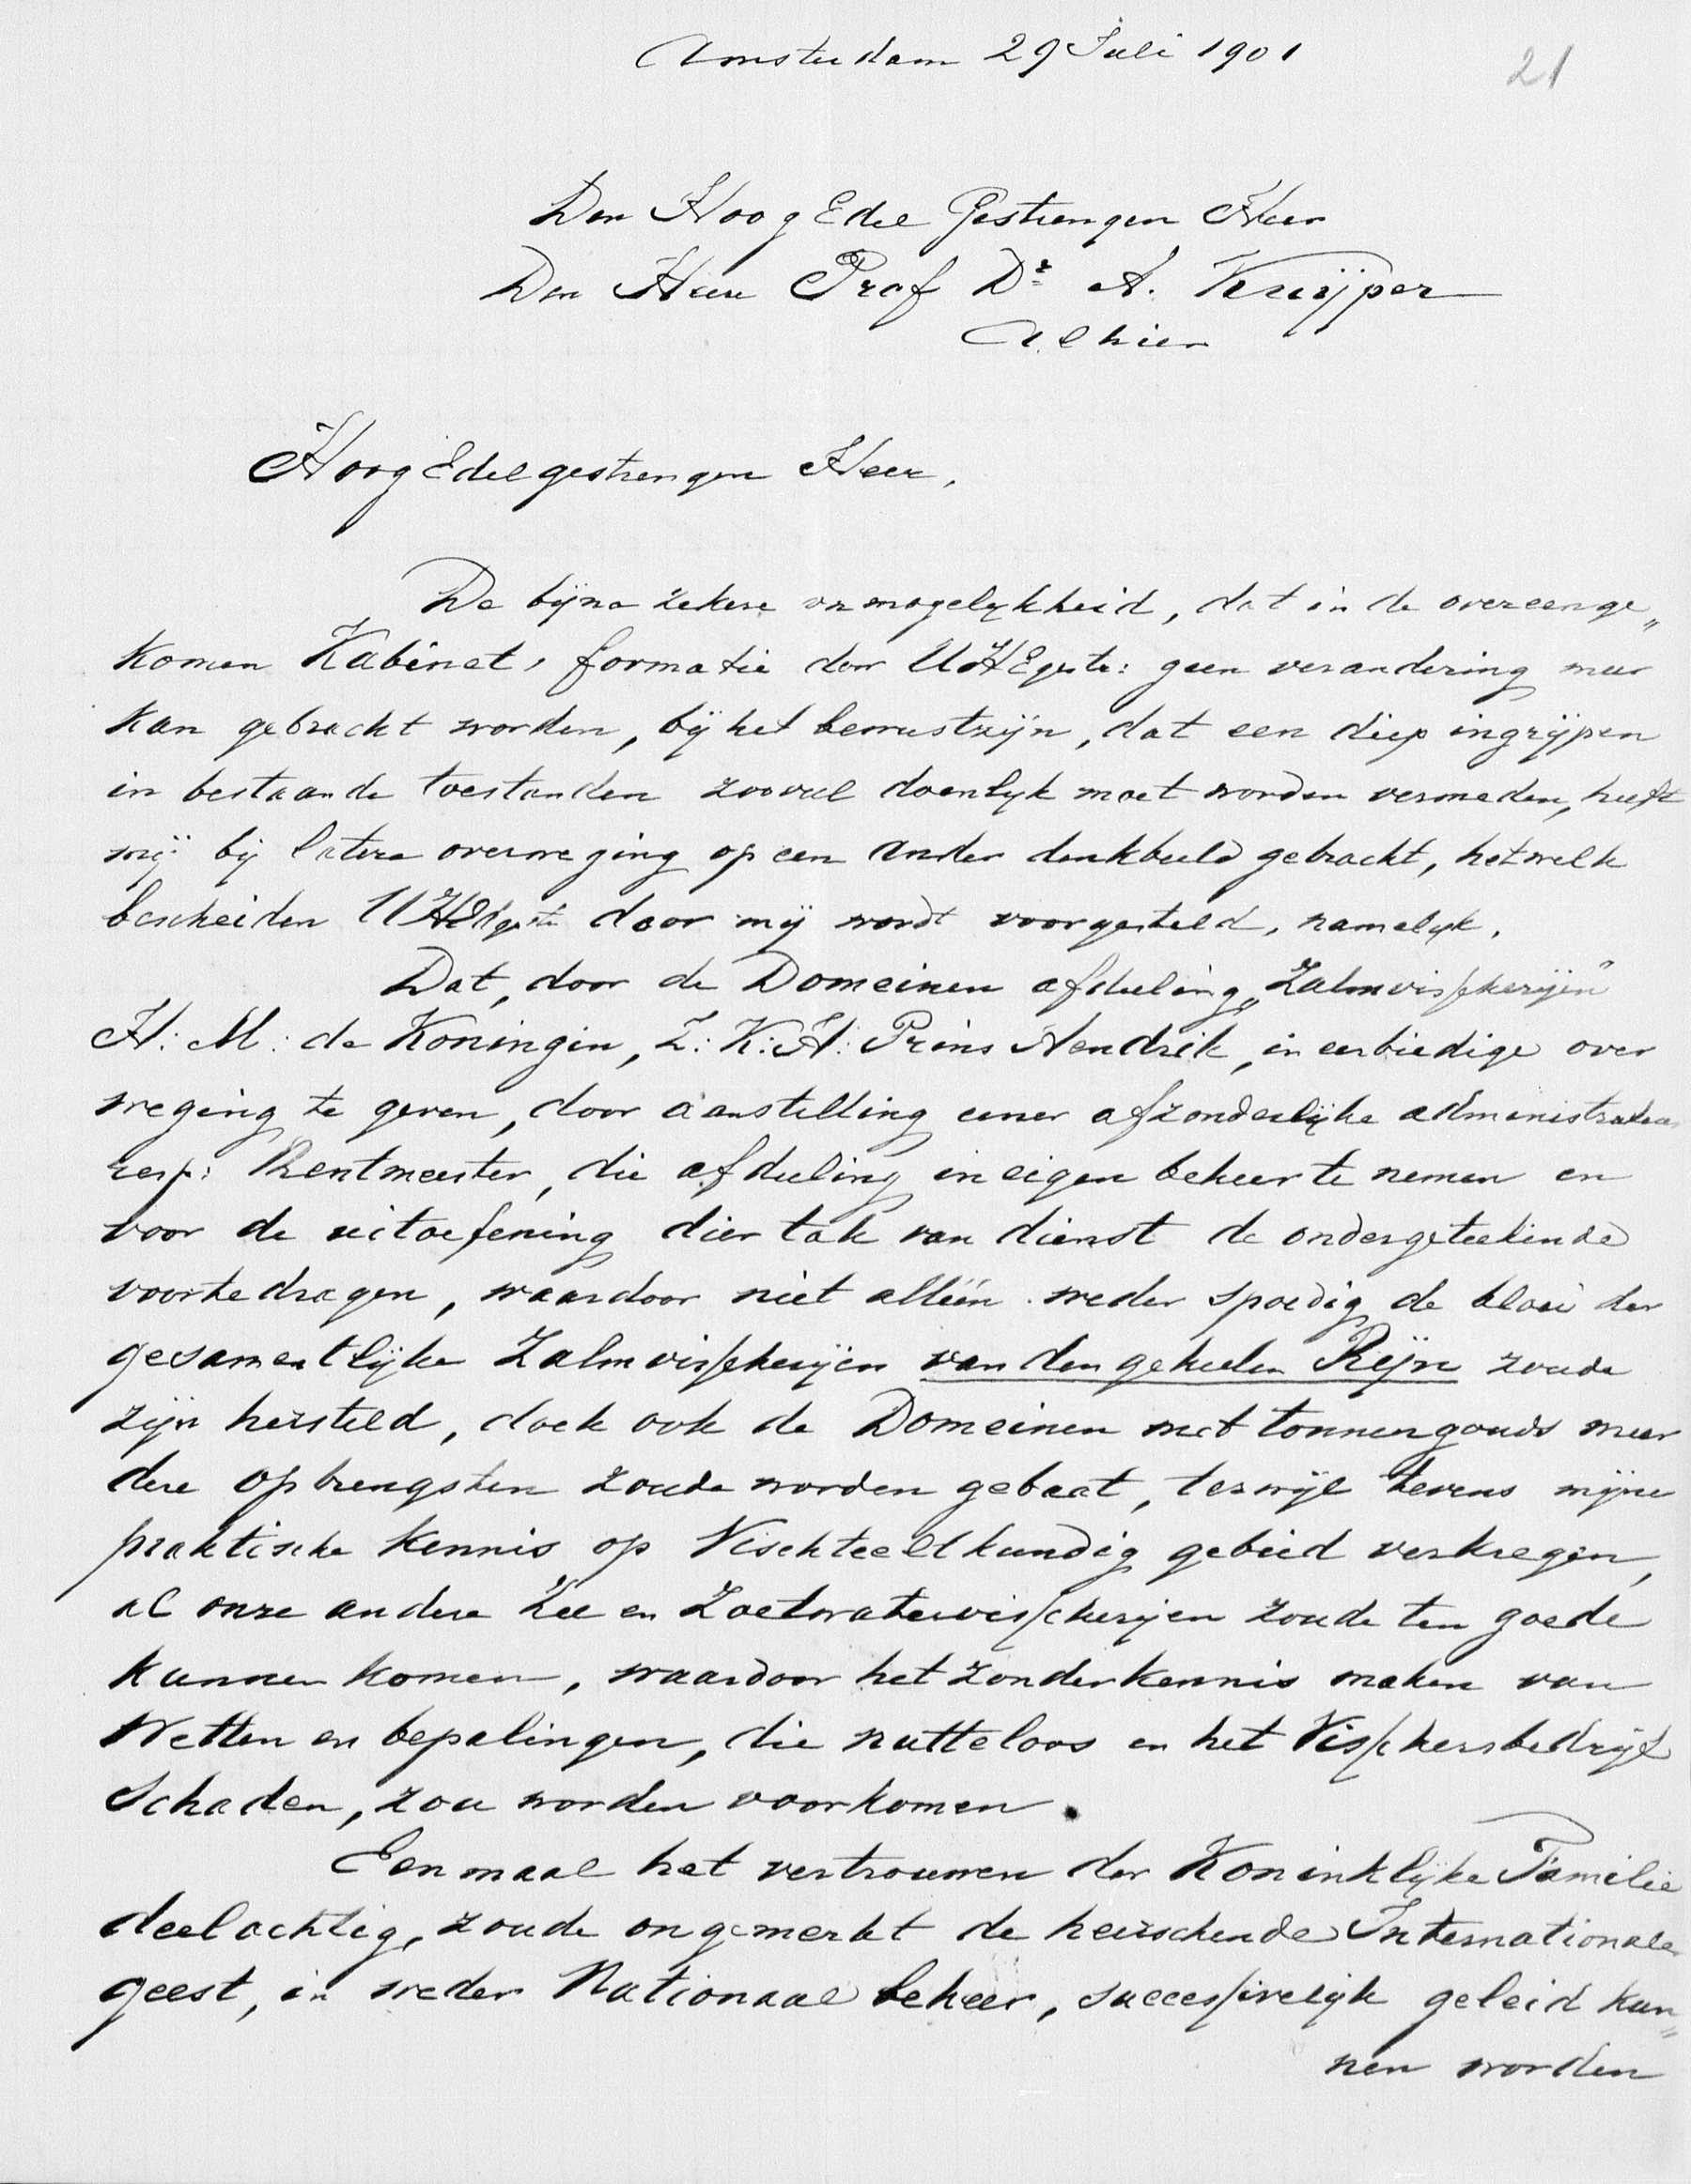 Amsterdam 29 Juli 1901
21
Den Hoog Edel Gestrengen Heer
Den Heer Prof Dr. A. Kuijper
Alhier
HoogEdelgestrengen Heer,
De bijna zekere onmogelykheid, dat in de overeenge„
komen Kabinet, formatie door UHEgestr: geen verandering meer
kan gebracht worden, bij het bewustzijn, dat een diep ingrijpen
in bestaande toestanden zooveel doenlyk moet worden vermeden, heeft
mij bij latere overweging op een ander denkbeeld gebracht, hetwelk
bescheiden UHEdgestr door mij wordt voorgesteld, namelyk.
Dat, door de Domeinen afdeeling „Zalmvisscherijen"
H: M: de Koningin, Z: K: H: Prins Hendrik, in eerbiedige over
weging te geven, door aanstelling eener afzonderlijke administrateur
resp: Rentmeester, die afdeeling in eigen beheer te nemen en
voor de uitoefening dier tak van dienst de ondergeteekende
voortedragen, waardoor niet alléén weder spoedig de bloei der
gesamentlijke Zalmvisscherijen van den geheelen Rijn zoude
zijn hersteld, doch ook de Domeinen met tonnengouds meer
dere opbrengsten zoude worden gebaat, terwijl tevens mijne
praktische kennis op Vischteeltkundig gebied verkregen,
al onze andere Zee en Zoetwatervisscherijen zoude ten goede
kunnen komen, waardoor het zonder kennis maken van
Wetten en bepalingen, die nutteloos en het Visschersbedrijf
Schaden, zou worden voorkomen.
Eenmaal het vertrouwen der Koninklijke Familie
deelachtig, zoude ongemerkt de heerschende Internationale
geest, in weder Nationaal beheer, successivelijk geleid kun„
nen worden